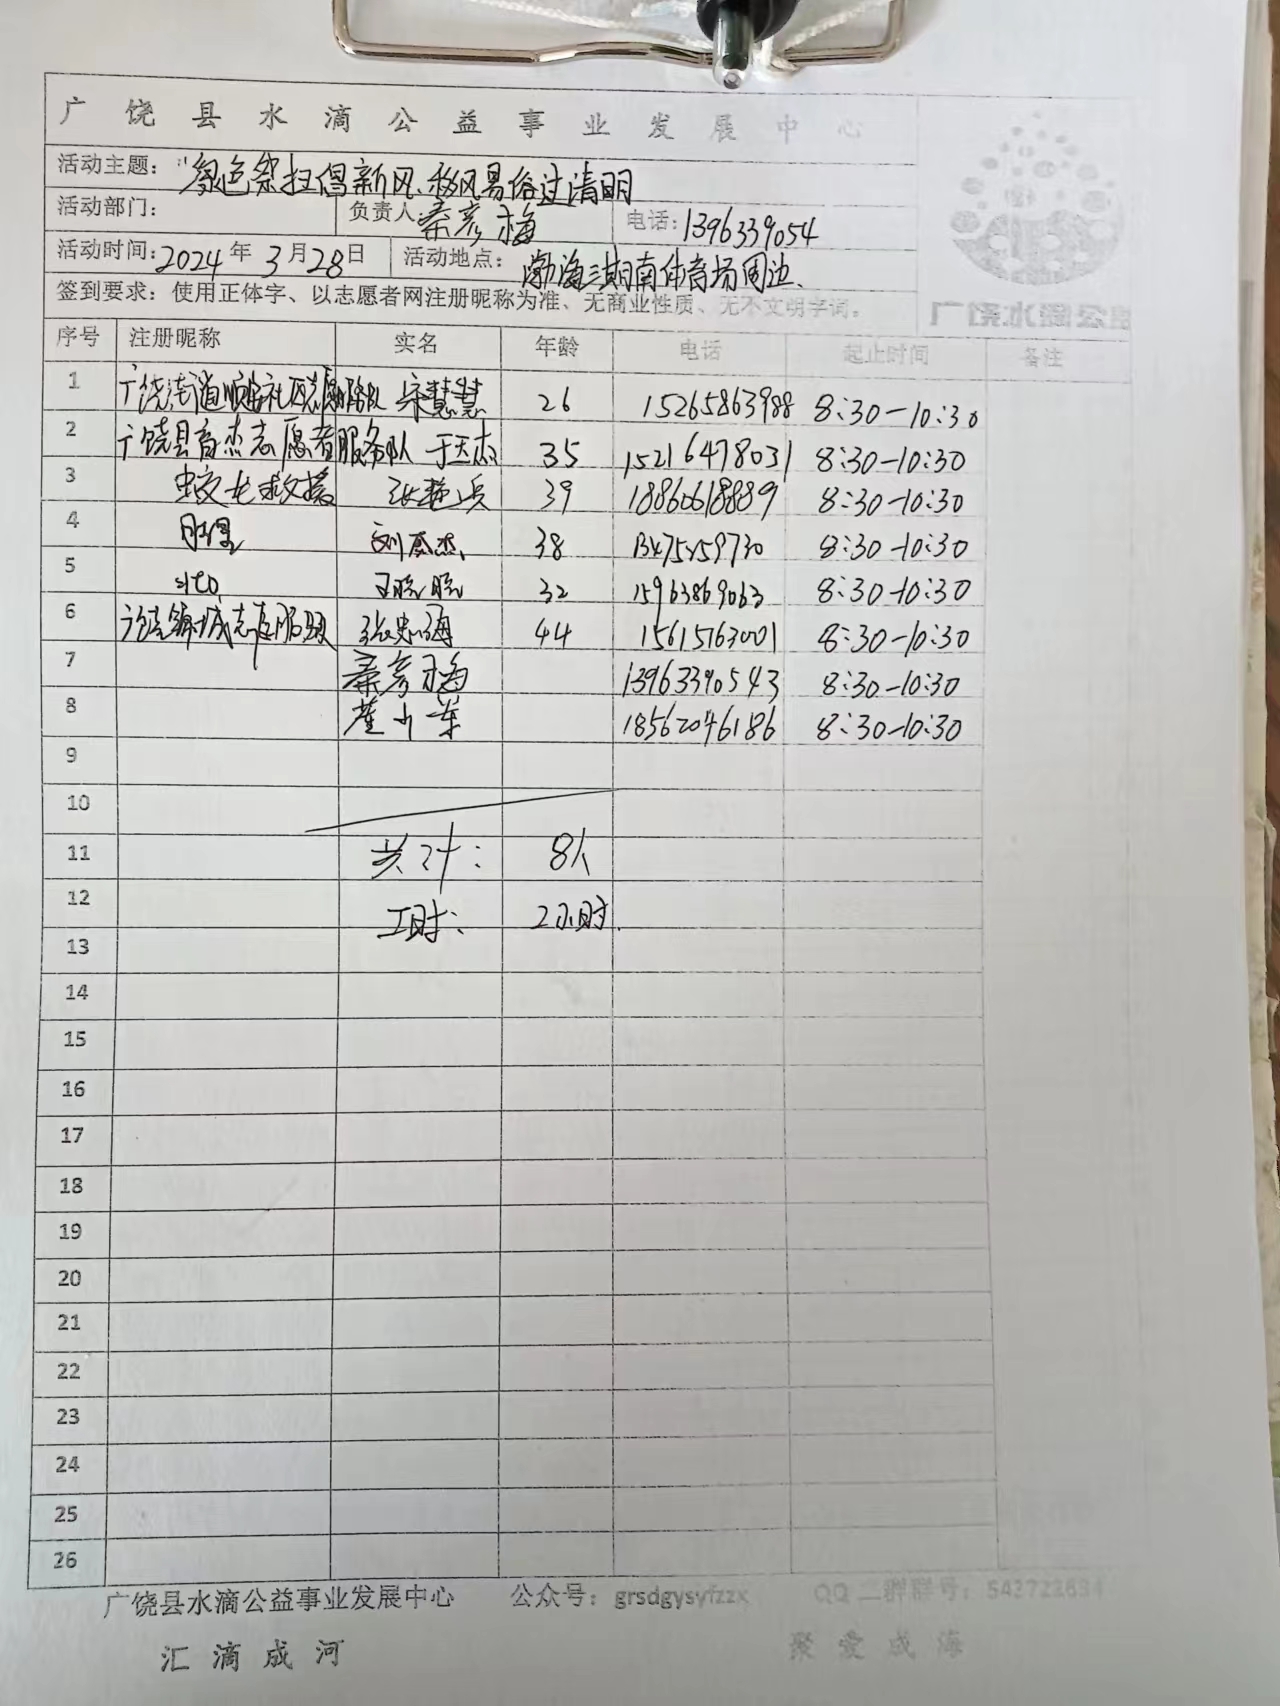 广饶县水滴公益事业发展中心
活动主题：“绿色祭扫倡新风、移风易俗过清明
活动部门： 负责人：秦彦梅 电话：1396339054
活动时间：2024年3月28日 活动地点：渤海三期南体育场周边、
签到要求：使用正体字、以志愿者网注册昵称为准、无商业性质、无不文明字词。
序号 注册昵称 实名 年龄 电话 起止时间 备注
1 广饶街道顺安社区志愿服务队 宋慧慧 26 15265863988 8:30-10:30
2 广饶县育杰志愿者服务队 于玉杰 35 15216478031 8:30-10:30
3 蛟龙救援 张艳兵 39 18860618889 8:30-10:30
4 刘 38 8:30-10:30
5 王晓晓 32 15963869063 8:30-10:30
6 张忠海 44 15615763001 8:30-10:30
7 秦彦梅 13963390543 8:30-10:30
8 崔小华 18562046186 8:30-10:30
9
10
11 共计： 8人
12 工时： 2小时.
13
14
15
16
17
18
19
20
21
22
23
24
25
26
广饶县水滴公益事业发展中心 公众号：grsdgysyfzzx QQ二群群号：543722634
汇滴成河 聚爱成海